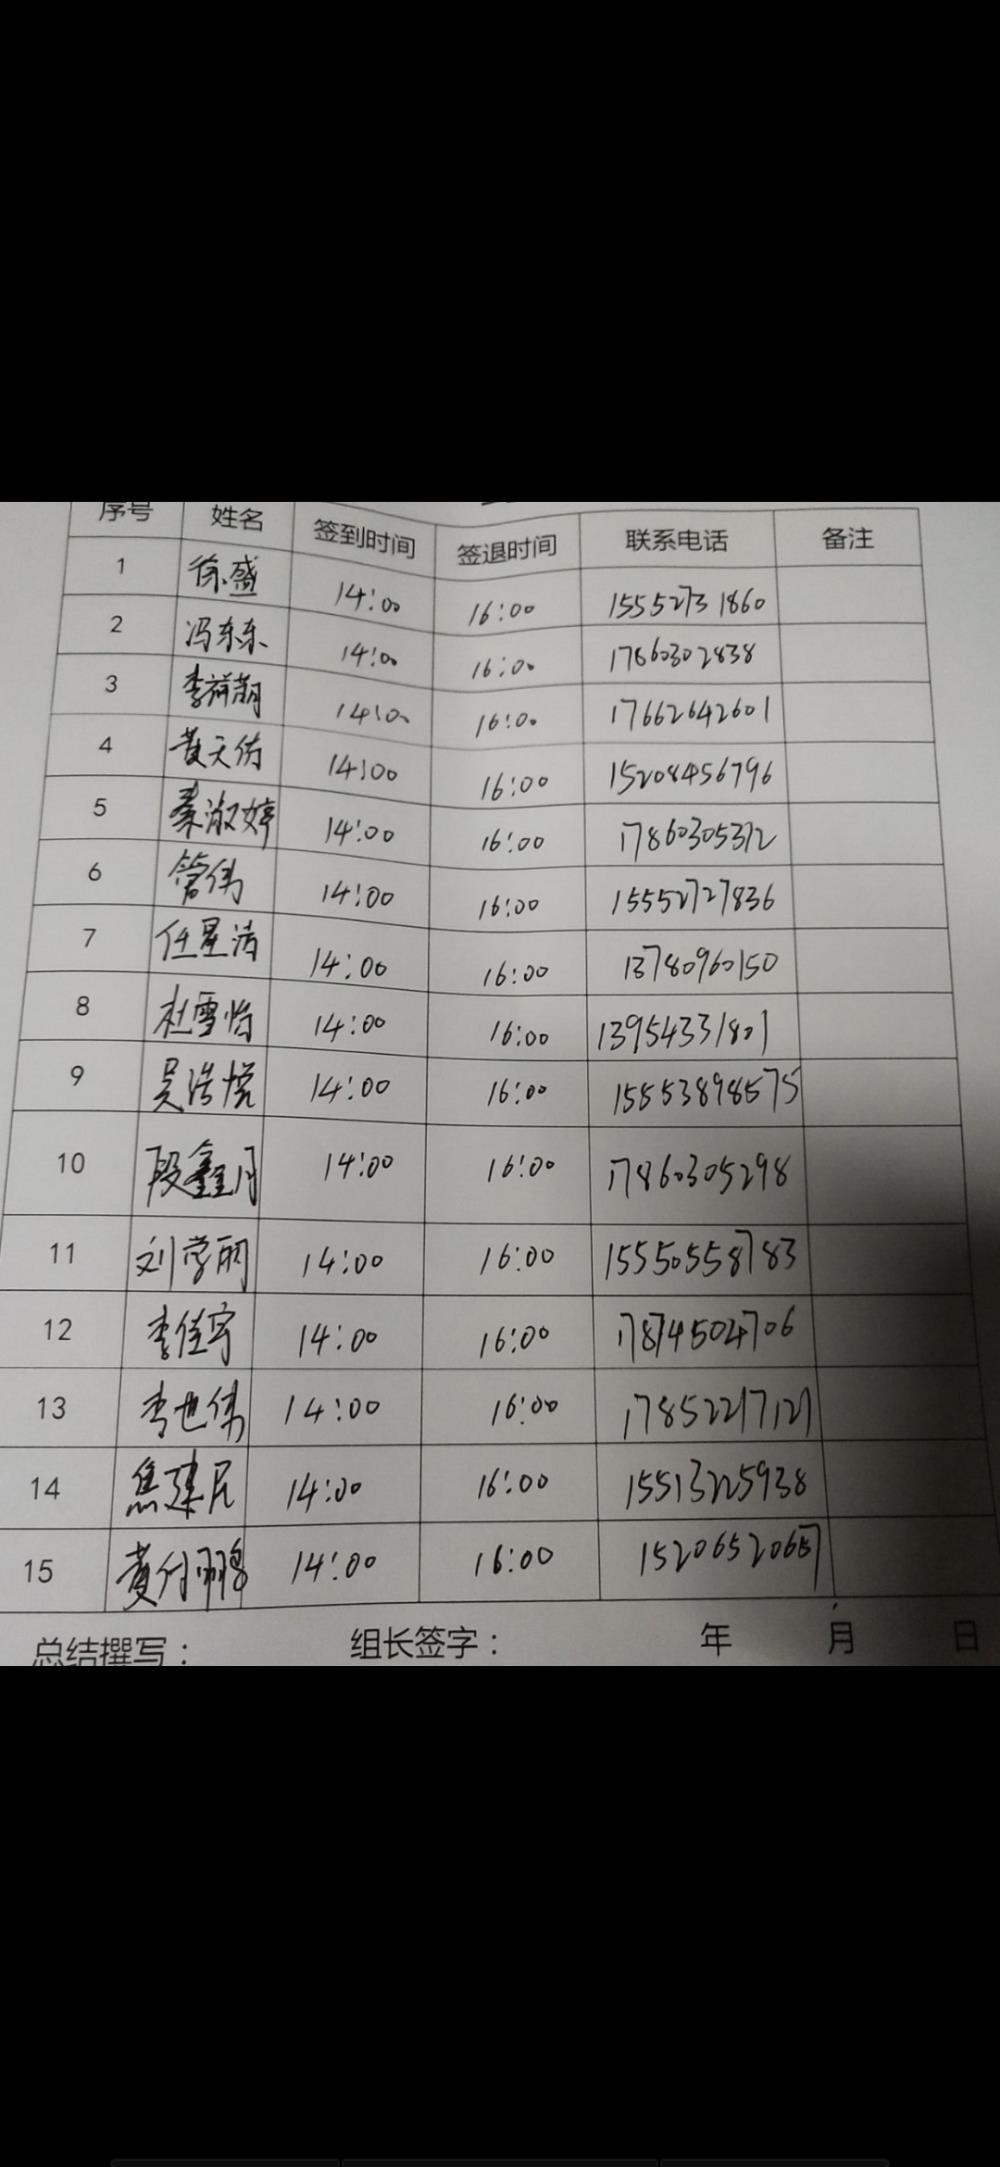 序号 姓名 签到时间 签退时间 联系电话 备注
1 徐盛 14:00 16:00 15552731860
2 冯东东 14:00 16:00 17860302838
3 李祥萌 14:00 16:00 17662642601
4 黄天佑 14:00 16:00 15208456796
5 秦淑婷 14:00 16:00 17860305372
6 管伟 14:00 16:00 15552727836
7 任星洁 14:00 16:00 13780960150
8 杜雪怡 14:00 16:00 13954331801
9 吴浩悦 14:00 16:00 15553898575
10 段鑫月 14:00 16:00 17860305298
11 刘学丽 14:00 16:00 15550558783
12 李佳宇 14:00 16:00 17874504706
13 李世伟 14:00 16:00 17852217121
14 焦建 14:00 16:00 15513225938
15 黄付鹏 14:00 16:00
总结撰写： 组长签字： 年 月 日